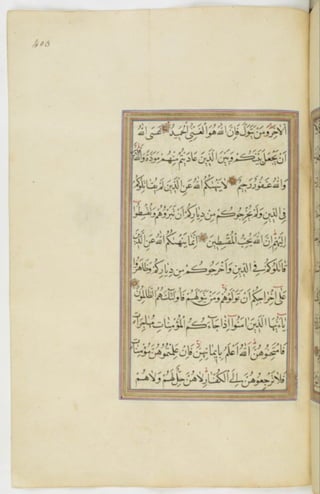 403
الاخر ومن يتول فان الله هو الغنى الحميد عسى الله
ان يجعل بينكم وبين الذين عاديتم منهم مودة والله قدير
والله غفور رحيم لا ينهيكم الله عن الذين لم يقاتلوكم
فى الدين ولم يخرجوكم من دياركم ان تبروهم وتقسطوا
اليهم ان الله يحب المقسطين انما ينهيكم الله عن الذين
قاتلوكم فى الدين واخرجوكم من دياركم وظاهروا
على اخراجكم ان تولوهم ومن يتولهم فاولئك هم الظالمون
يا ايها الذين امنوا اذا جاءكم المؤمنات مهاجرات
فامتحنوهن الله اعلم بايمانهن فان علمتموهن مؤمنات
فلا ترجعوهن الى الكفار لا هن حل لهم ولا هم